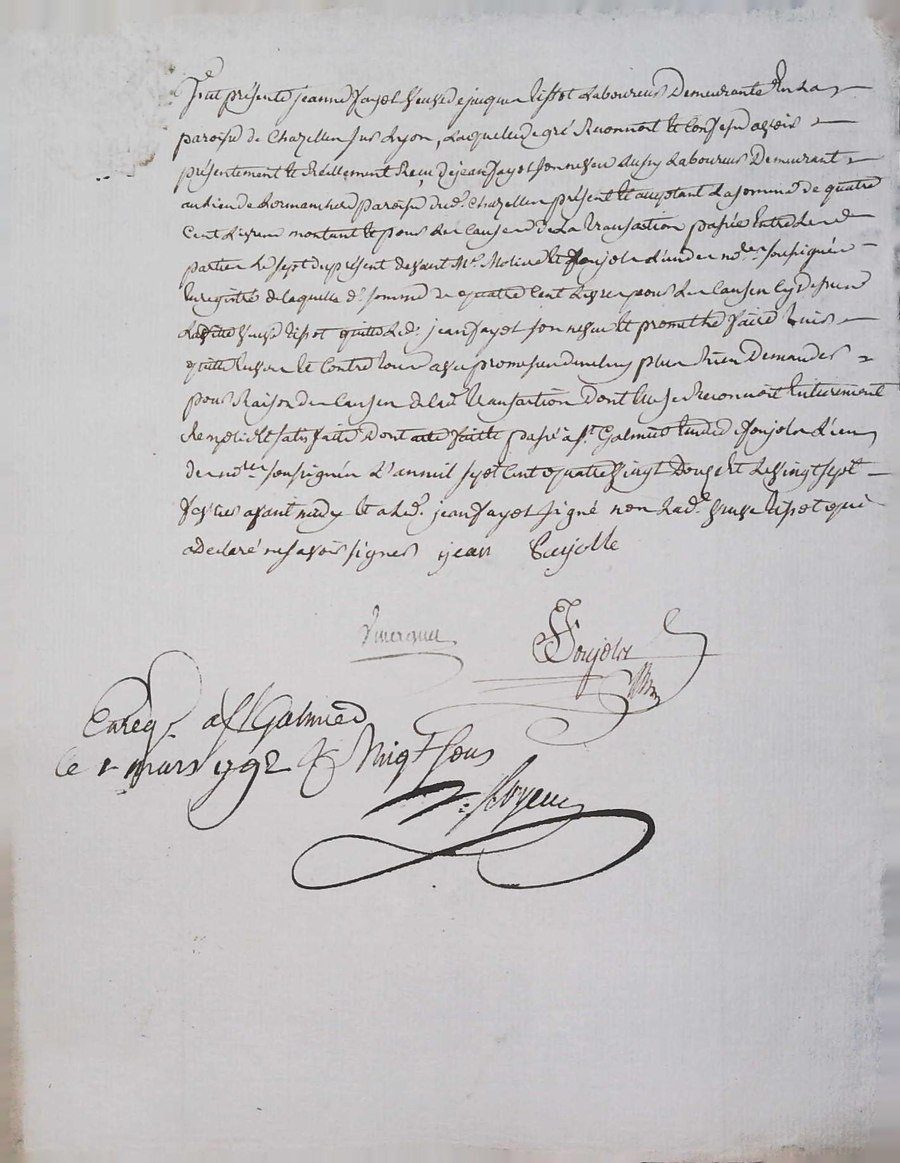 Fut présente jeanne fayot veuve de jacque tissot Laboureur Demeurante En La
paroisse de Chazelles sur Lyon, Laquelle de gré Reconnoit et Confesse avoir
présentement et Réellement Recu de jean fayot son neveu aussy Laboureur Demeurant
au Lieu de paroisse dud. Chazelles présent et acceptant La somme de quatre
Cent Livres montant et pour Les Causes de La transaction passée Entre Les d.
parties Le sept du présent devant Me. Moline et Lun des nores. soussignés
Enregistré de laquelle de. somme de quatre Cent Livres pour Les Causes Cy dessus
Ladite veuve tissot quitte Led. jean fayot son neveu et promet Le faire tenir
quitte Envers et Contre tous avec promesse de ne Luy plus Rien Demander
pour Raison des Causes de lad. transaction Dont Elle se Reconnoit Entierement
Remplie et satisfaite Dont acte fait et passé a st. Galmier Etude de l'un
des nores. soussignés L'an mil sept Cent quatre vingt Douze et Le vingt sept
fevrier avant midy Et a Led. jean fayot signé non Lad. veuve tissot qui
a declaré ne savoir signer jean
Enregt. a St Galmier
le 1 mars 1792 Vingt sous